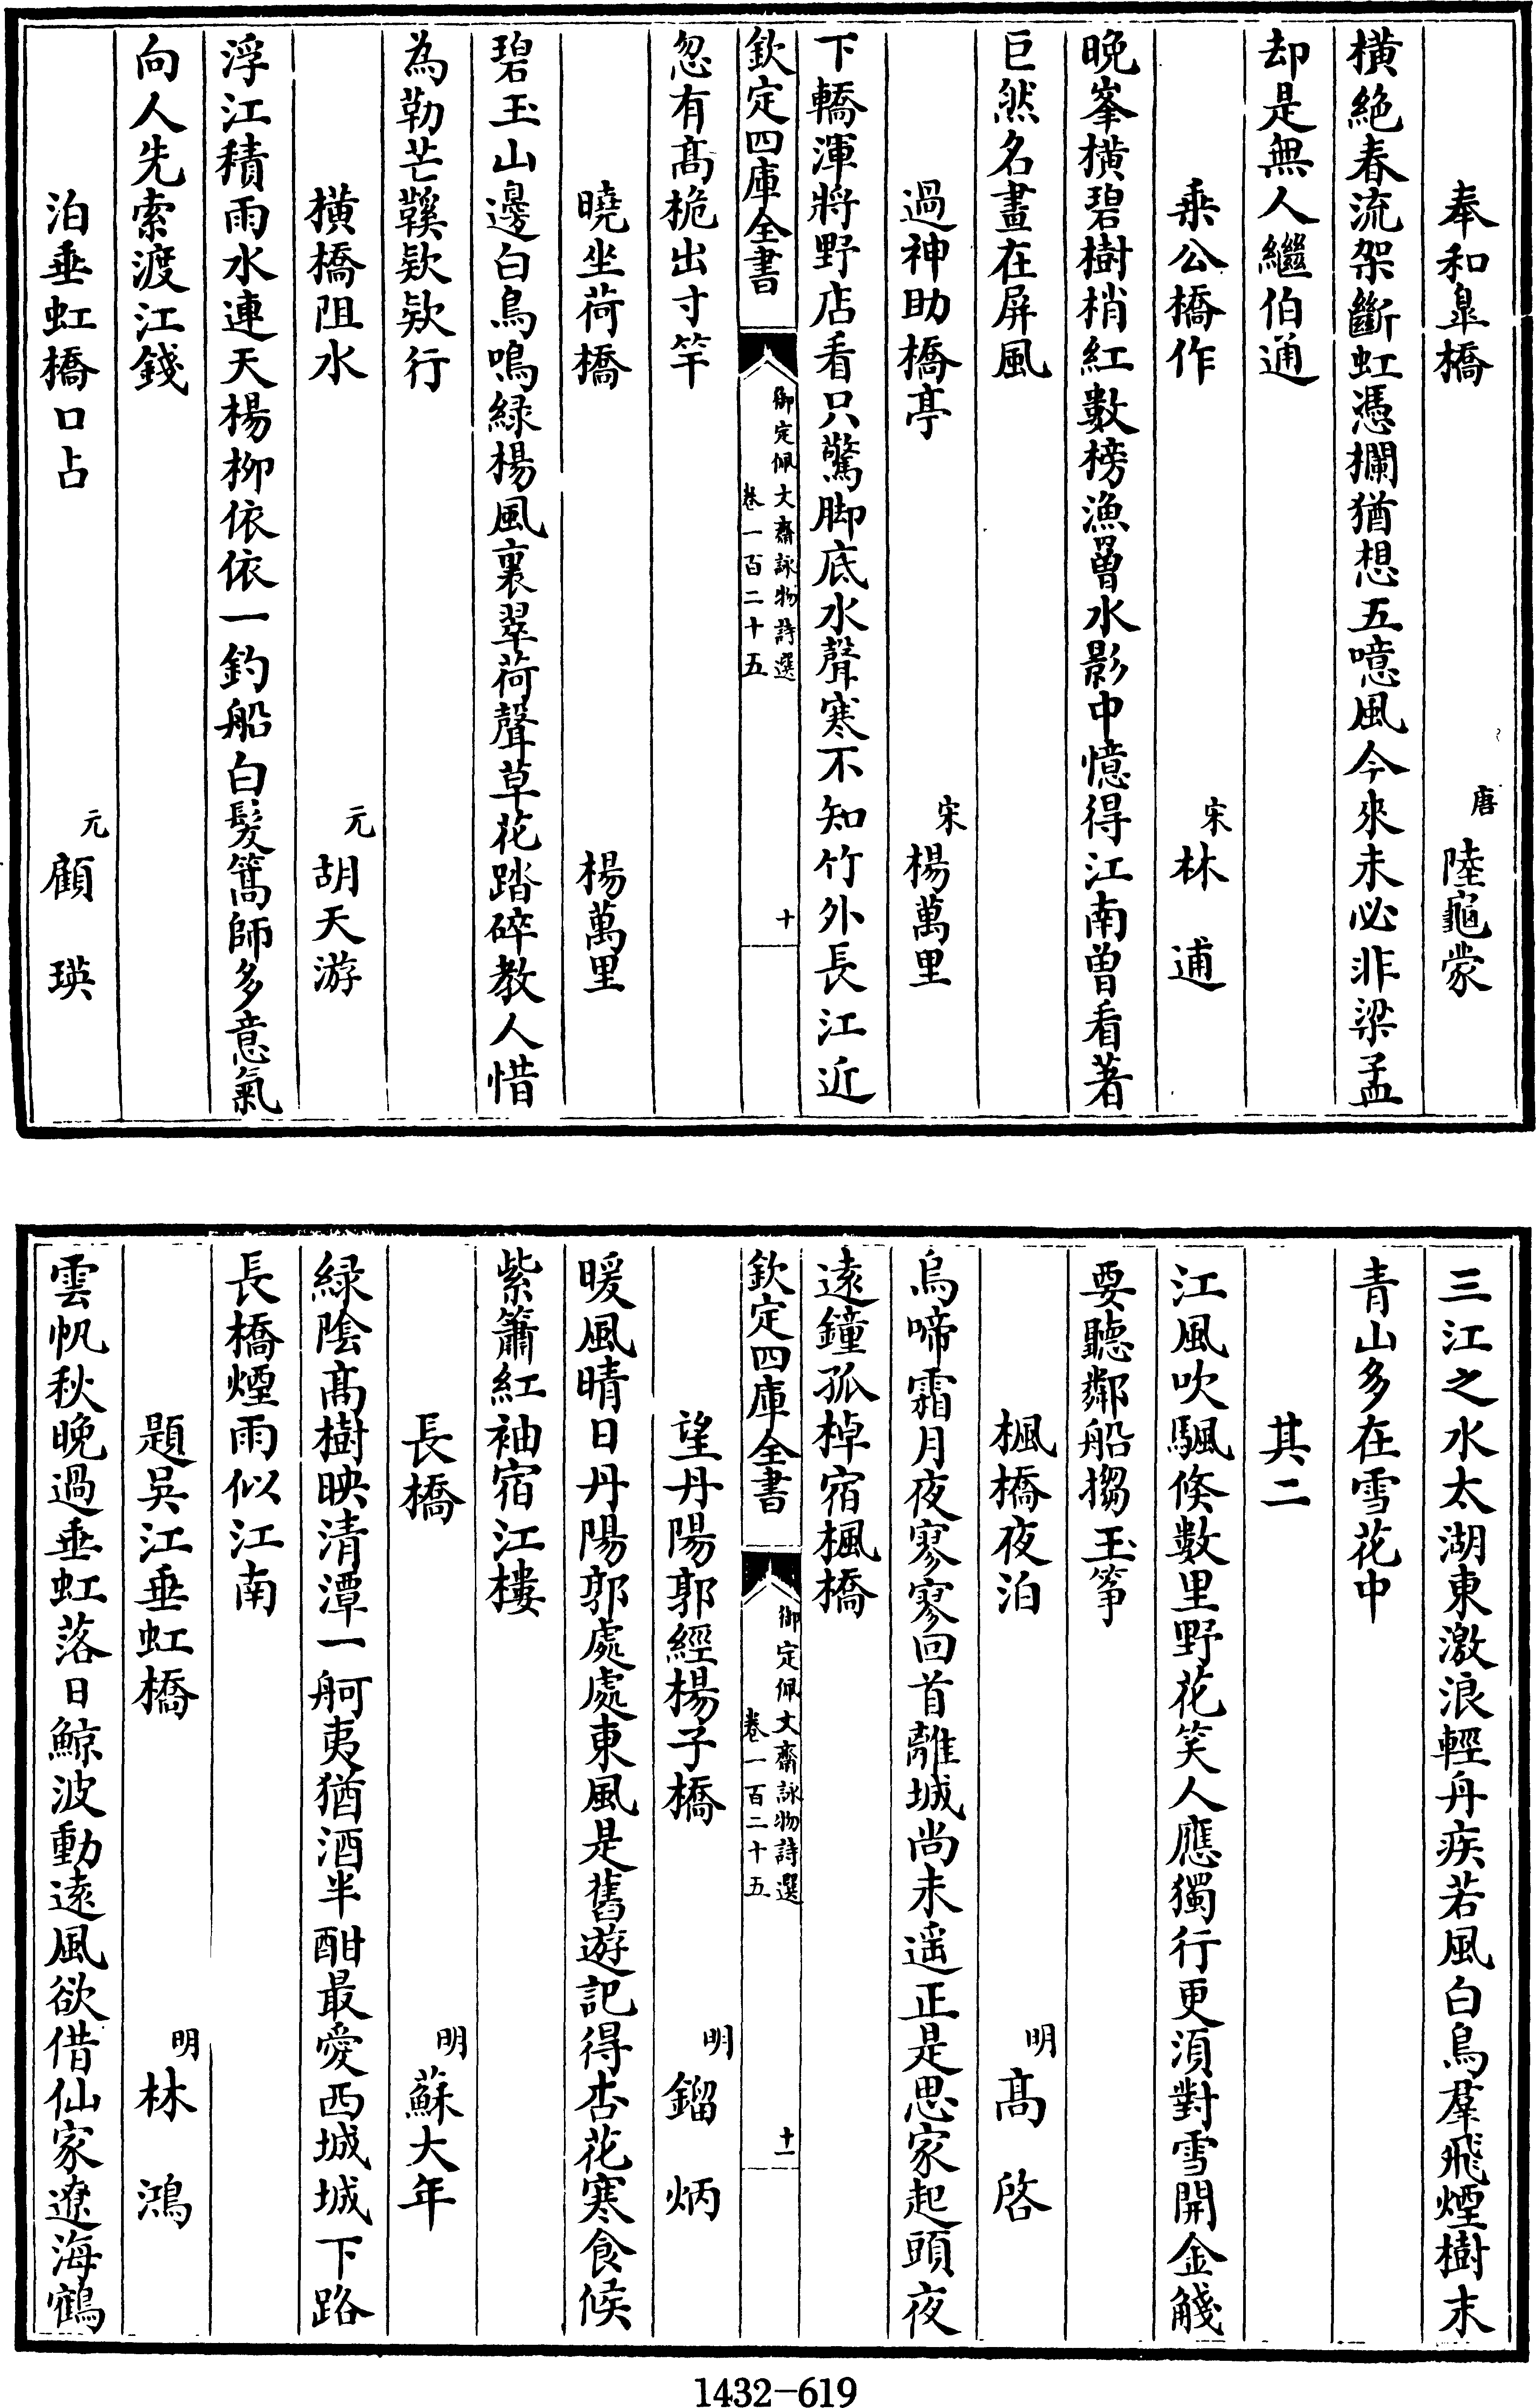 奉和臯橋　唐陸龜蒙
橫絶春流架斷虹憑攔猶想五噫風今來未必非梁孟
却是無人繼伯通
乗公橋作　宋林逋
晚峯橫碧樹梢紅數榜漁罾水影中憶得江南曽看著
巨然名畫在屏風
過神助橋亭　宋楊萬里
下轎渾將野店看只驚脚底水聲寒不知竹外長江近
欽定四庫全書
御定佩文齋詠物詩選
卷一百二十五
十
忽有髙桅出寸竿
曉坐荷橋　楊萬里
碧玉山邊白鳥鳴緑楊風裏翠荷聲草花踏碎教人惜
為勒芒鞵欵欵行
橫橋阻水　元胡天游
浮江積雨水連天楊柳依依一釣船白髮篙師多意氣
向人先索渡江錢
泊垂虹橋口占　元顧瑛
三江之水太湖東激浪輕舟疾若風白鳥羣飛煙樹末
青山多在雪花中
其二
江風吹颿倐數里野花笑人應獨行更湏對雪開金觴
要聽鄰船搊玉筝
楓橋夜泊　明髙啓
烏啼霜月夜寥寥回首離城尚未遥正是思家起頭夜
逺鐘孤棹宿楓橋
欽定四庫全書
御定佩文齋詠物詩選
卷一百二十五
十一
望丹陽郭經楊子橋　明鎦炳
暖風晴日丹陽郭處處東風是舊遊記得杏花寒食候
紫簫紅袖宿江樓
長橋　明蘇大年
緑隂髙樹映清潭一舸夷猶酒半酣最愛西城城下路
長橋煙雨似江南
題吳江垂虹橋　明林鴻
雲帆秋晚過垂虹落日鯨波動逺風欲借仙家遼海鶴
1432-619